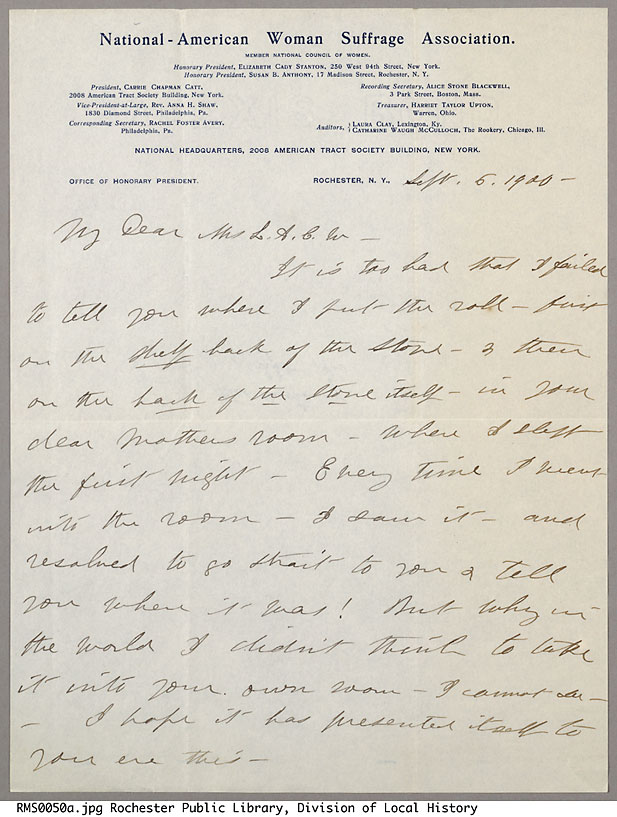 National-American Woman Suffrage Association.
MEMBER NATIONAL COUNCIL OF WOMEN.
Honorary President, ELIZABETH CADY STANTON, 250 West 94th Street, New York.
Honorary President, SUSAN B. ANTHONY, 17 Madison Street, Rochester, N. Y.
President, CARRIE CHAPMAN CATT,
2008 American Tract Society Building, New York.
Vice-President-at-Large, REV. ANNA H. SHAW,
1830 Diamond Street, Philadelphia, Pa.
Corresponding Secretary, RACHEL FOSTER AVERY,
Philadelphia, Pa.
Recording Secretary, ALICE STONE BLACKWELL,
3 Park Street, Boston, Mass.
Treasurer, HARRIET TAYLOR UPTON,
Warren, Ohio.
Auditors, { LAURA CLAY, Lexington, Ky.
CATHARINE WAUGH MCCULLOCH, The Rookery, Chicago, Ill.
NATIONAL HEADQUARTERS, 2008 AMERICAN TRACT SOCIETY BUILDING, NEW YORK.
OFFICE OF HONORARY PRESIDENT.
ROCHESTER, N. Y., Sept. 5. 1900 -
My Dear Mrs L. A. C. W -
It is too bad that I failed
to tell you where I put the roll - first
on the shelf back of the stove - & then
on the back of the stove itself - in your
dear Mothers room - where I slept
the first night - Every time I went
into the room - I saw it - and
resolved to go strait to you & tell
you where it was! But why in
the world I didn't think to take
it into your own room - I cannot see -
- I hope it has presented itself to
you ere this -
RMS0050a.jpg Rochester Public Library, Division of Local History